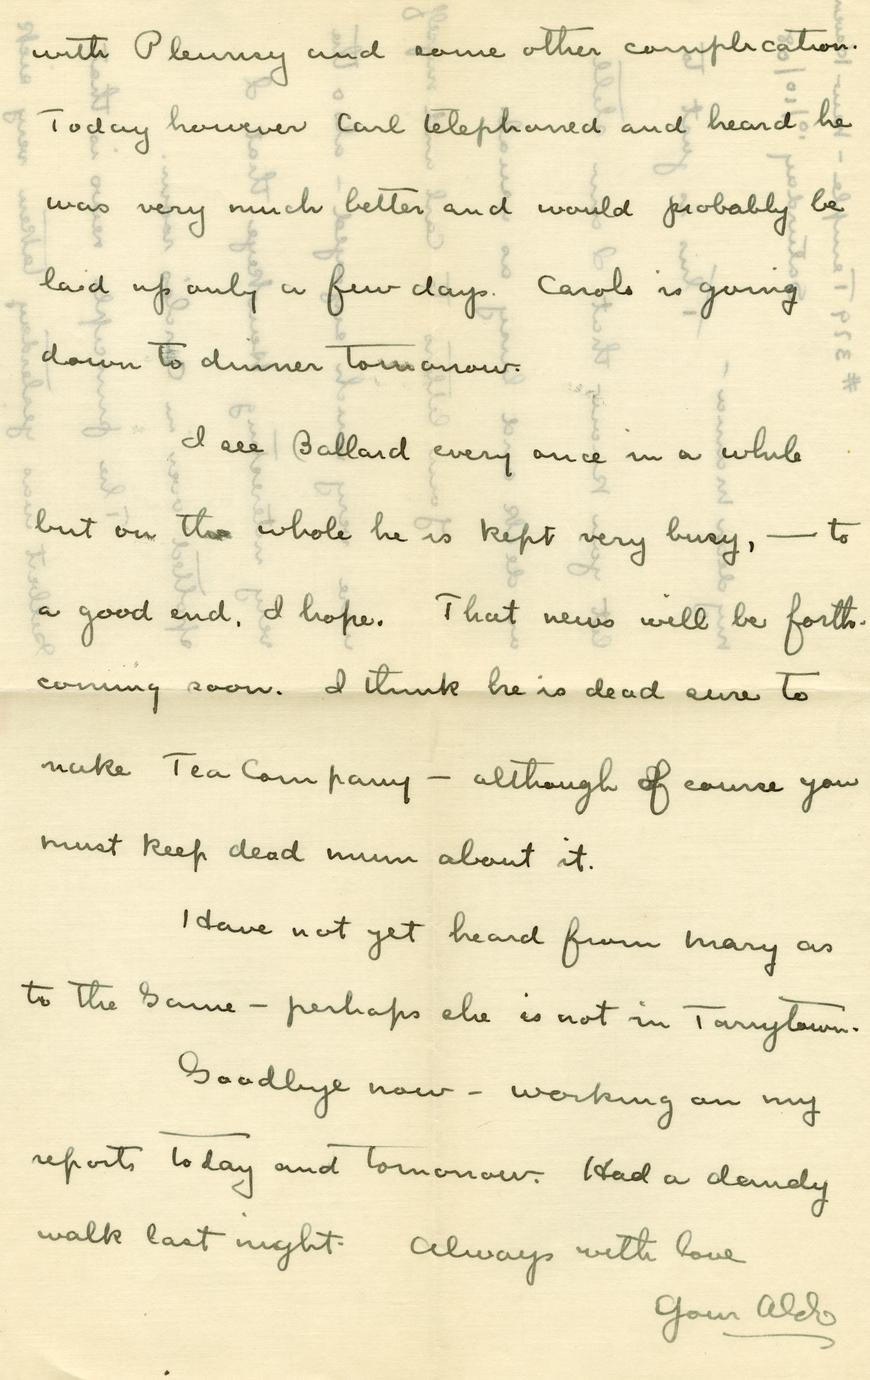 with Pleurisy and some other complication.
Today however Carl telephoned and heard he
was very much better and would probably be
laid up only a few days. Carols is going
down to dinner tomorrow.
I see Ballard every once in a while
but on the whole he is kept very busy, — to
a good end, I hope. That news will be forth-
coming soon. I think he is dead sure to
make Tea Company – although of course you
must keep dead mum about it.
Have not yet heard from Mary as
to the Game – perhaps she is not in Tarrytown.
Goodbye now – working on my
reports today and tomorrow. Had a dandy
walk last night. Always with love
Your Aldo